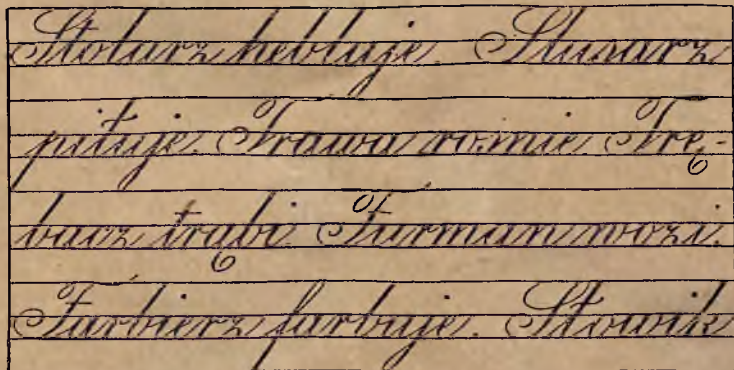 Stolarz hebluje. Slusarz
piłuje. Trawa rośnie. Trę-
bacz trąbi. Furman wozi.
Farbierz farbuje. Słowik